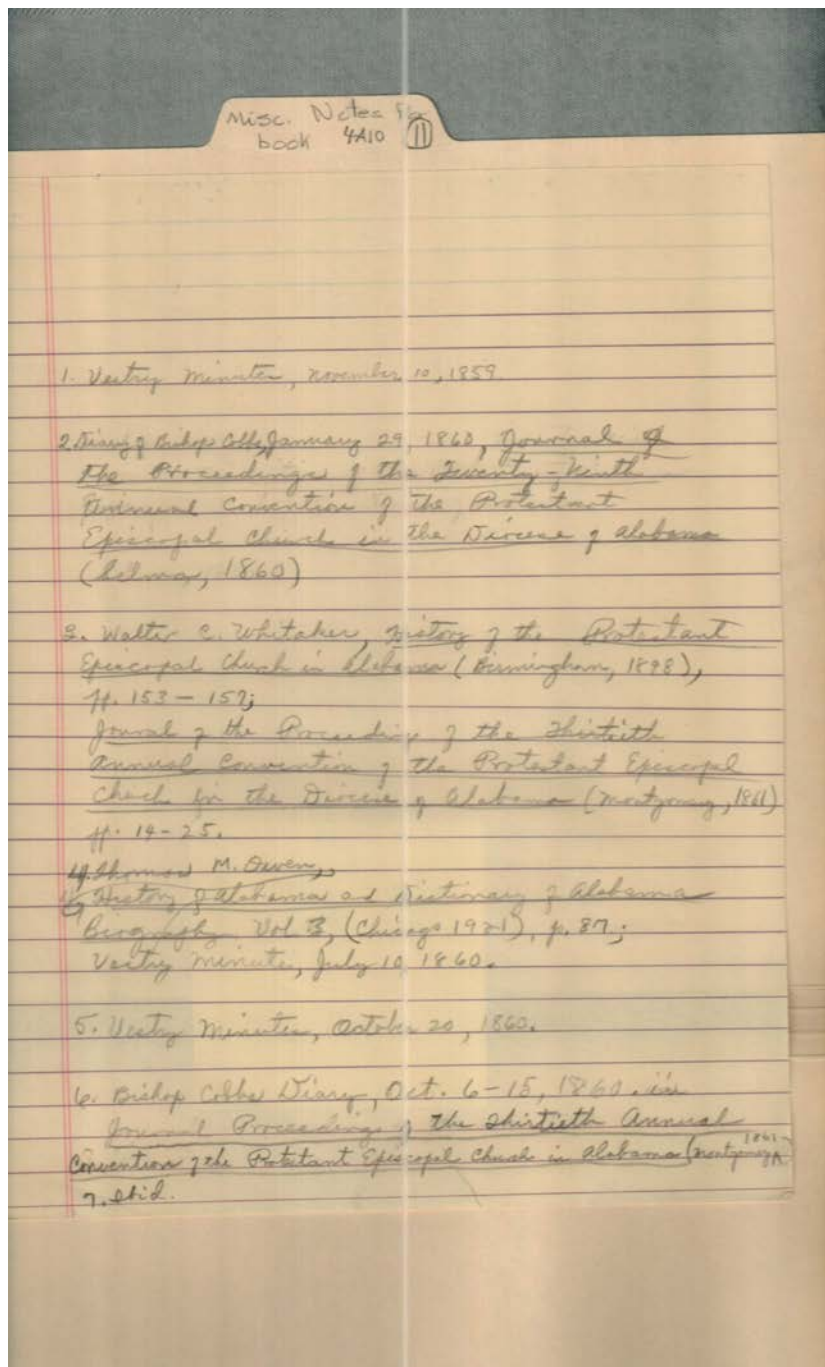 Misc. Notes for
book 4A10 11
1. Vestry Minutes, November 10, 1859.
2. Diary of Bishop Cobbs, January 29, 1860, Journal of
the Proceedings of the Twenty-Ninth
Annual Convention of the Protestant
Episcopal Church in the Diocese of Alabama
(Selma, 1860)
3. Walter C. Whitaker, History of the Protestant
Episcopal Church in Alabama (Birmingham, 1898),
pp. 153-157;
Journal of the Proceedings of the Thirtieth
Annual Convention of the Protestant Episcopal
Church in the Diocese of Alabama (Montgomery, 1861)
pp. 14-25.
4. Thomas M. Owen,
History of Alabama and Dictionary of Alabama
Biography Vol 3, (Chicago 1921), p. 87;
Vestry Minutes, July 10, 1860.
5. Vestry Minutes, October 20, 1860.
6. Bishop Cobbs Diary, Oct. 6-15, 1860. in
Journal Proceedings of the Thirtieth Annual
Convention of the Protestant Episcopal Church in Alabama (Montgomery 1861
7. Ibid.